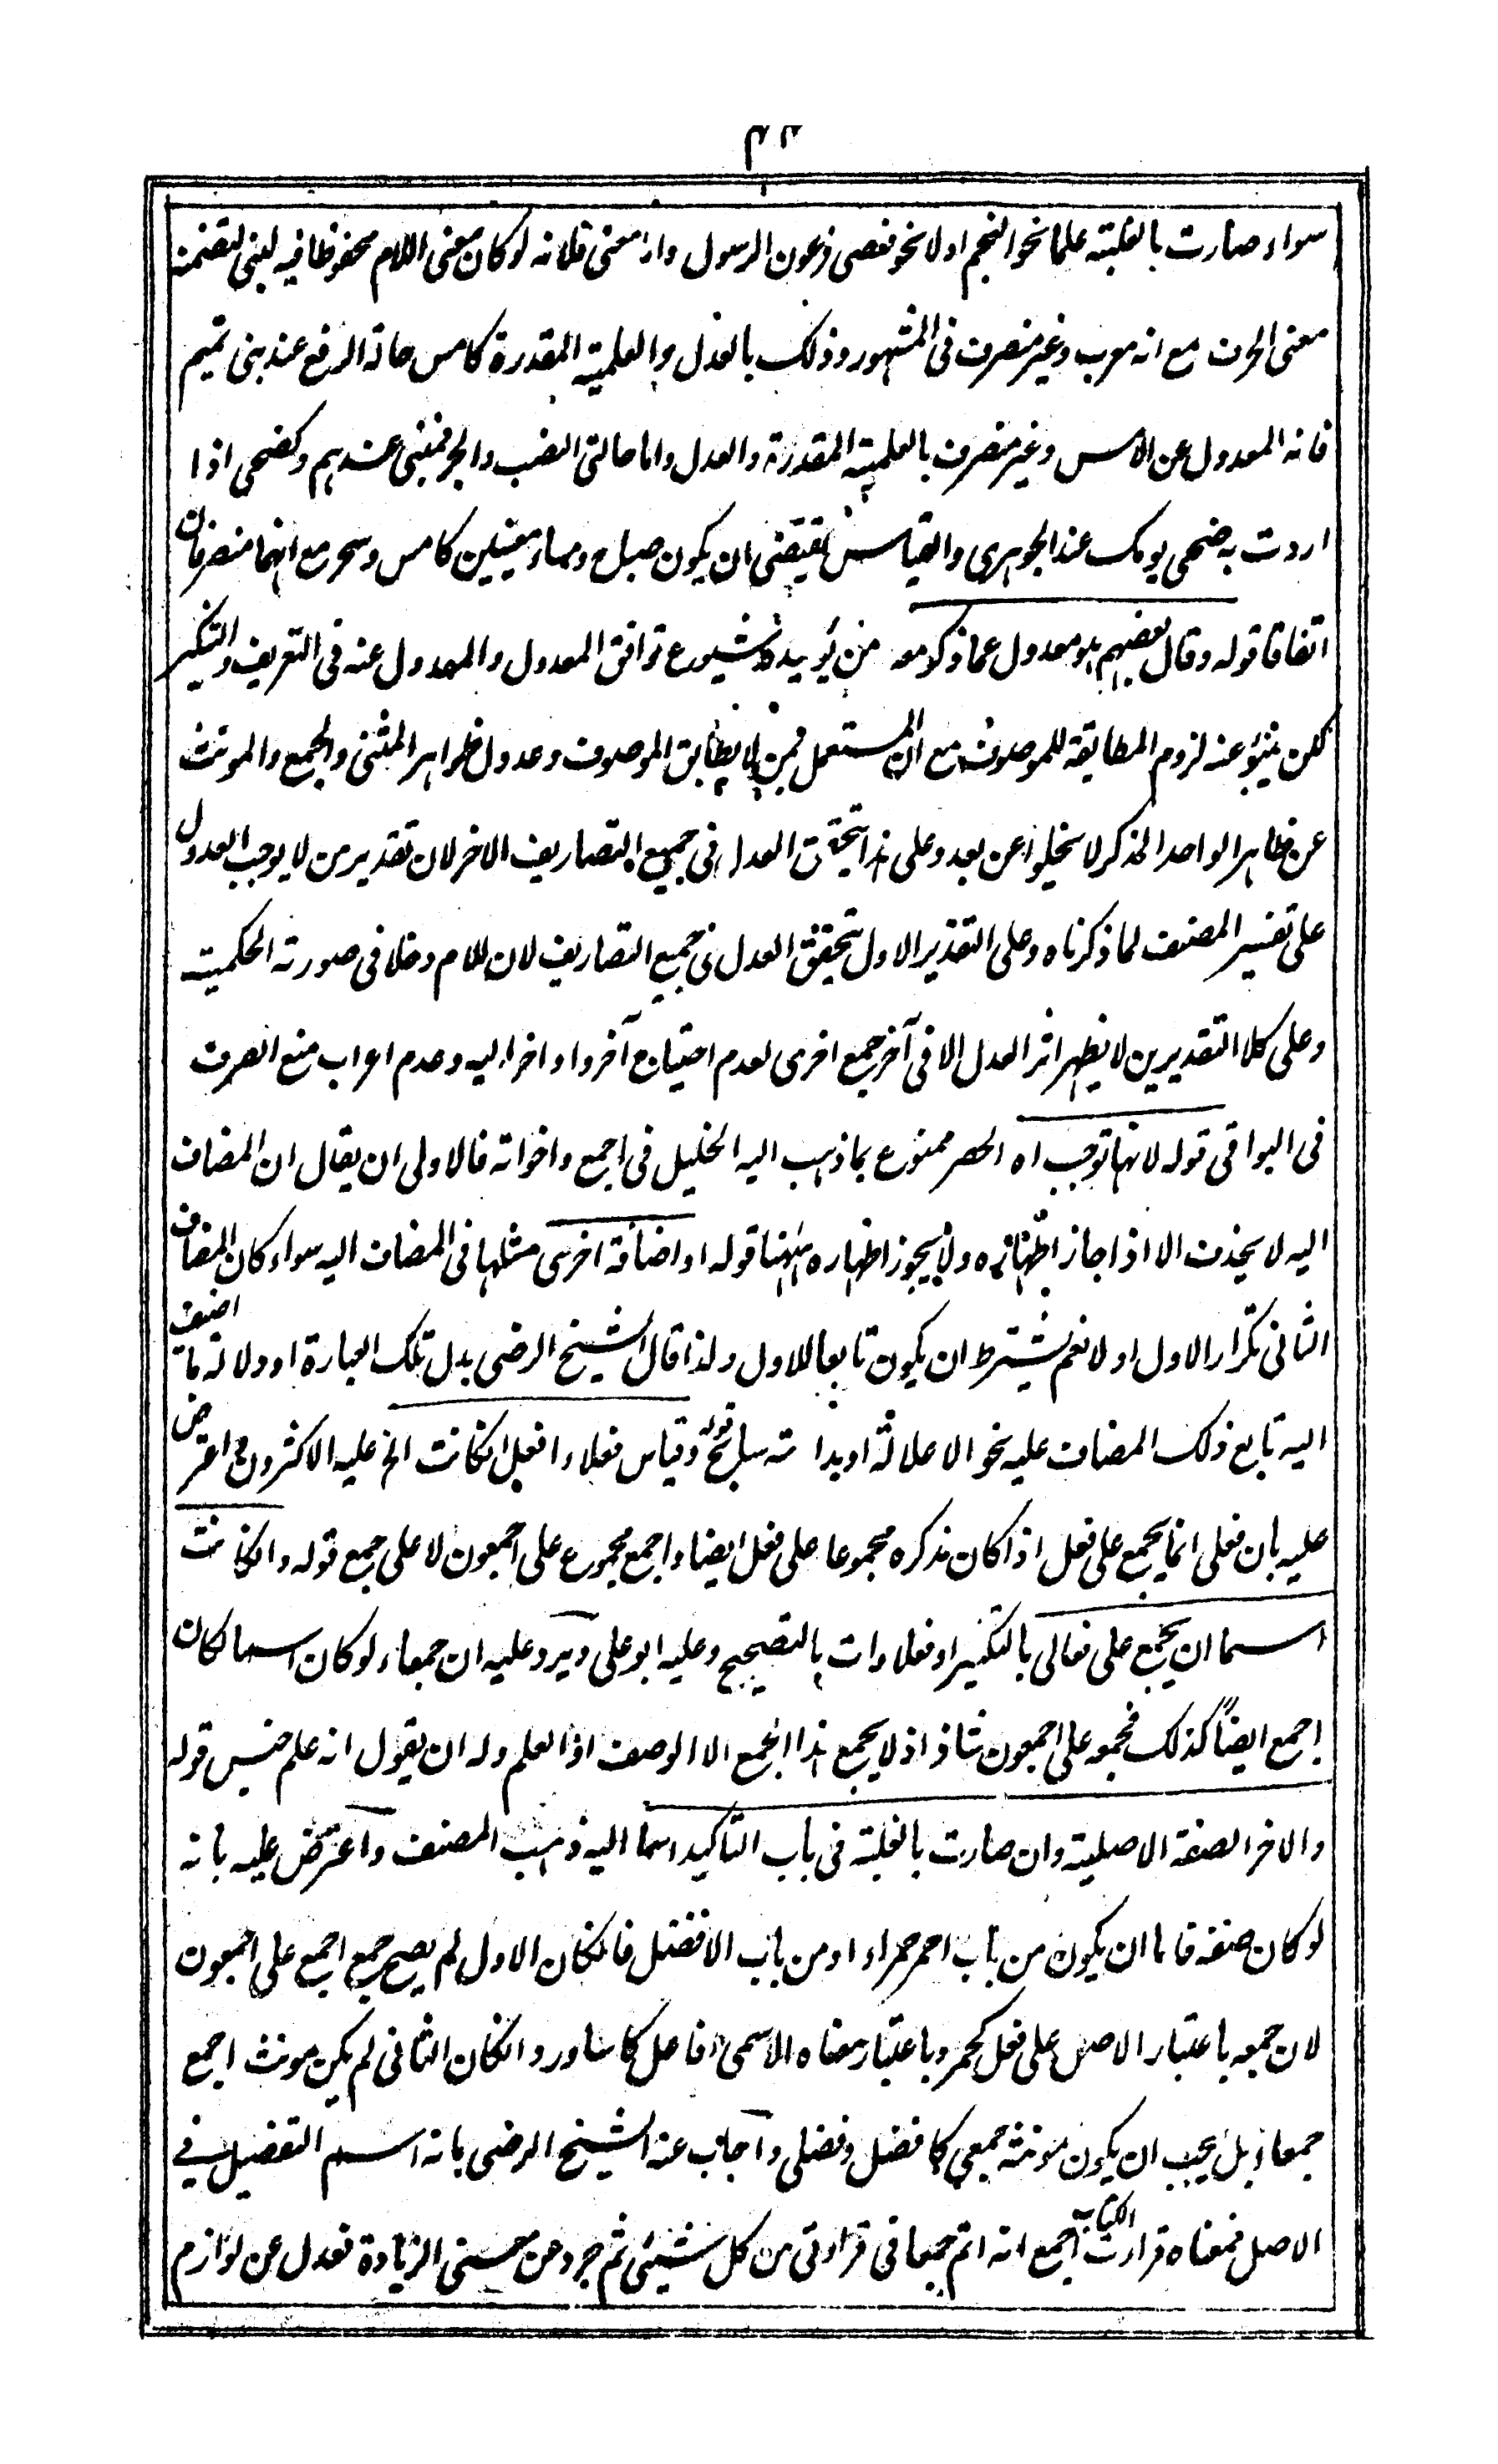 ٤٢
سواء صارت بالغلبته علما نحو النجم اولا نحو فعصى فرعون الرسول واذا معنى قلانه لو كان معنى اللام محفوظا فيه لبنى لتضمنه
معنى الحرف مع انه معرب وغير منصرف فى المشهور وذلك بالعدل والعلمية المقدرة كامس حالة الرفع عند بنى تميم
فانه المعدول عن الامس وغير منصرف بالعلمية المقدرة والعدل واما حالتى النصب والجر فمبنى عندهم وكضحى اذا
اردت به ضحى يومك عند الجوهرى والقياس يقتضى ان يكون صباح ومساء معينين كامس وسحر مع انهما منصرفان
اتفاقا قوله وقال بعضهم هو معدول عما ذكر معه من يؤيده شيوع توافق المعدول والمعدول عنه فى التعريف والتنكير
لكن ينبؤ عنه لزوم المطابقة للموصوف مع ان المستعمل بمن لا يطابق الموصوف وعدول ظواهر المثنى والجمع والمونث
عن ظاهر الواحد المذكر لا يخلوا عن بعد وعلى هذا يتحقق العدل فى جميع التصاريف الاخر لان تقدير من لا يوجب العدول
على تفسير المصنف لما ذكرناه وعلى التقدير الاول تحقيق العدل فى جميع التصاريف لان للام دخلا فى صورته الحكمية
وعلى كلا التقديرين لا يظهر اثر العدل الا فى آخر جمع اخرى لعدم احتياج آخر واواخر اليه وعدم اعراب منع الصرف
فى البواقى قوله لانها توجب اه الحصر ممنوع بما ذهب اليه الخليل فى اجمع واخواته فالاولى ان يقال ان المضاف
اليه لا يحذف الا اذا جاز اظهاره ولا يجوز اظهاره ههنا قوله او اضافة اخرى مثلها فى المضاف اليه سواء كان المضاف
الثانى تكرار الاول اولا نعم يشترط ان يكون تابعا للاول ولذا قال الشيخ الرضى بدل تلك العبارة او دلالة ما اضيف
اليه تابع ذلك المضاف عليه نحو الا علالة او بداهة سابح قوله وقياس فعلاء افعل انكانت الخ عليه الاكثرون واعترض
عليه بان فعلى انما يجمع على فعل اذا كان مذكره مجموعا على فعل ايضا واجمع مجموع على اجمعون لا على جمع قوله وانكانت
اسما ان يجمع على فعالى بالتكسير او فعلاوات بالتصحيح وعليه ابو على ويرد عليه ان جمعاء لو كان اسما لكان
اجمع ايضاً كذلك فجمعه على اجمعون شاذ اذ لا يجمع هذا الجمع الا الوصف اذا العلم وله ان يقول انه علم جنس قوله
والاخر الصفة الاصلية وان صارت بالغلبة فى باب التاكيد اسما اليه ذهب المصنف واعترض عليه بانه
لو كان صفة فاما ان يكون من باب احمر حمراء او من باب الافضل فانكان الاول لم يصح جمع اجمع على اجمعون
لان جمعه باعتبار الاصل على فعل كحمر وباعتبار معناه الاسمى افاعل كاساور وانكان الثانى لم يكن مونث اجمع
جمعاء بل يجب ان يكون مونثه جمعى كافضل وفضلى واجاب عنه الشيخ الرضى بانه اسم التفضيل فى
الاصل فمعناه قرات الكتاب اجمع انه اتم جمعا فى قراءتى من كل شيئ ثم جرد عن معنى الزيادة فعدل عن لوازم